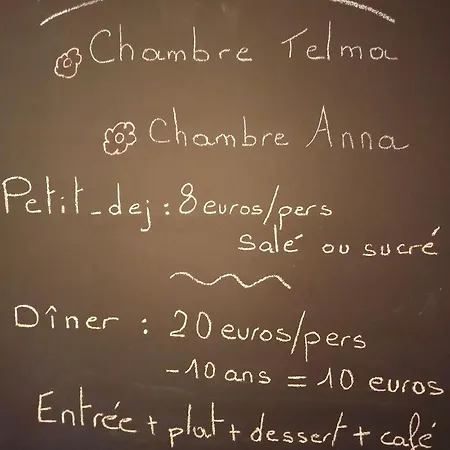 Chambre Telma
Chambre Anna
Petit-dej : 8 euros/pers
salé ou sucré
Dîner : 20 euros/pers
-10 ans = 10 euros
Entrée + plat + dessert + café